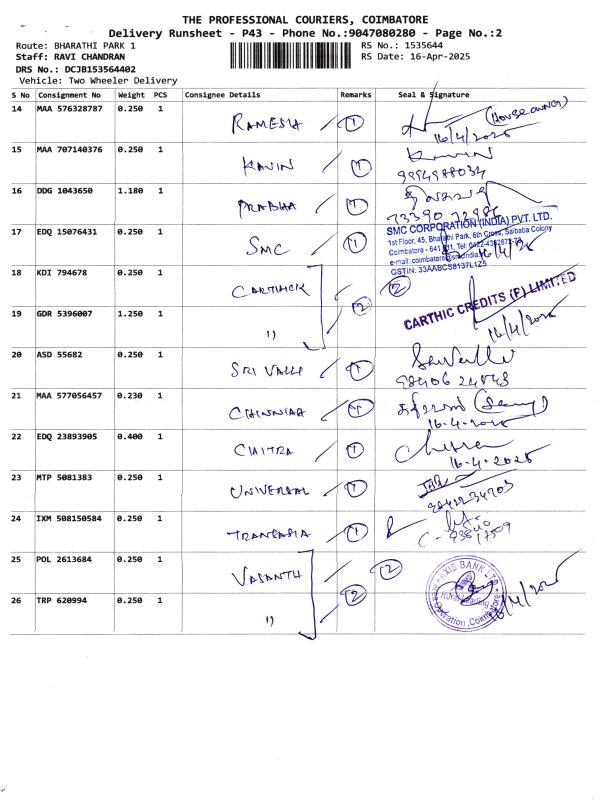 THE PROFESSIONAL COURIERS, COIMBATORE
Delivery Runsheet - P43 - Phone No.:9047080280 - Page No.:2
Route: BHARATHI PARK 1
RS No.: 1535644
Staff: RAVI CHANDRAN
RS Date: 16-Apr-2025
DRS No.: DCJB153564402
Vehicle: Two Wheeler Delivery
S No Consignment No Weight PCS Consignee Details Remarks Seal & Signature
14 MAA 576328787 0.250 1 RAMESH 1 (House owner) 16/4/2025
15 MAA 707140376 0.250 1 KAVIN 1
16 DDG 1043650 1.180 1 PRABHA 1
17 EDQ 15076431 0.250 1 SMC 1
SMC CORPORATION (INDIA) PVT. LTD.
1st Floor, 45, Bharathi Park, 6th Cross, Saibaba Colony
GSTIN: 33AABCS8137L1Z5
18 KDI 794678 0.250 1 CARTHICK 2
CARTHIC CREDITS (P) LIMITED
19 GDR 5396007 1.250 1 11 2 16/4/2025
20 ASD 55682 0.250 1 SRI VALLI 1
21 MAA 577056457 0.230 1 CHINNIAH 1 16-4-2025
22 EDQ 23893905 0.400 1 CHITRA 1 Chitra 16-4-2025
23 MTP 5081383 0.250 1 UNIVERSAL 1
24 IXM 508150584 0.250 1 TRANSASIA 1
25 POL 2613684 0.250 1 VASANTH 2
AXIS BANK LTD
26 TRP 620994 0.250 1 11 2 16/4/2025